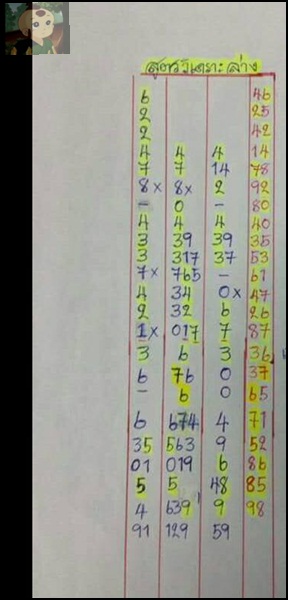 สูตรวิเคราะห์ล่าง
6 46
2 25
2 42
4 4 4 14
7 7 14 78
8× 8× 2 92
– 0 – 80
4 4 4 40
3 39 39 35
3 317 37 53
7× 765 – 61
4 34 0× 47
2 32 6 26
1× 017 7 87
3 6 3 36
6 76 0 37
– 6 0 65
6 674 4 71
35 563 9 52
01 019 6 86
5 5 48 85
4 639 9 98
91 129 59